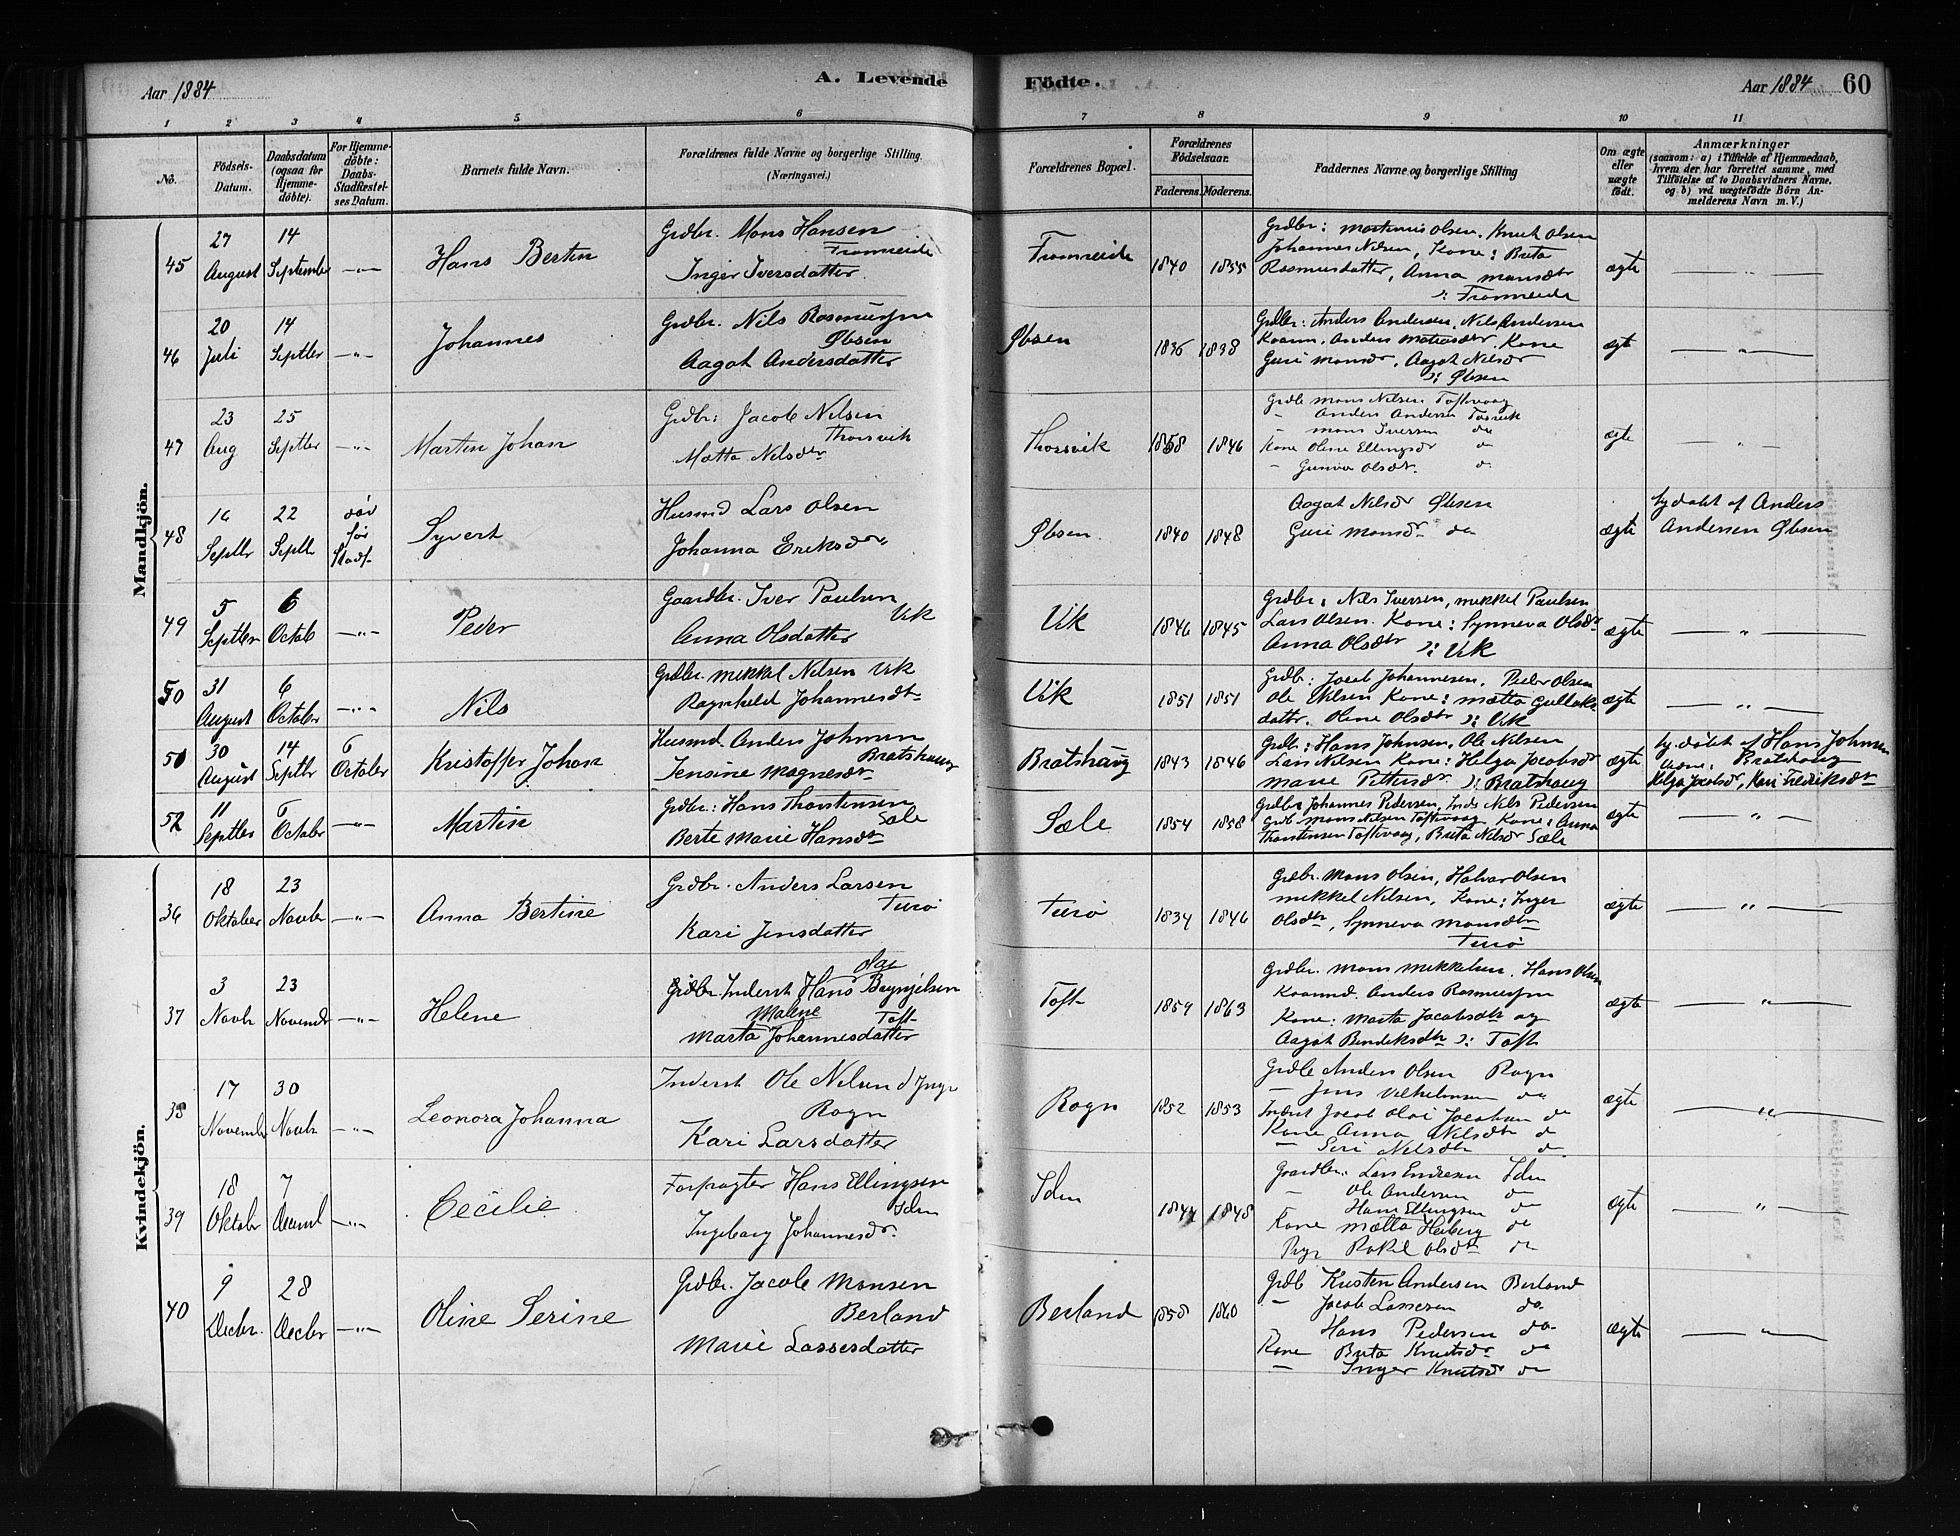 Aar 1884
A. Levende
Födte.
Aar 1884 60
1 2 3 4 5 6 7 8 9 10 11
No.
Födsels-Datum.
Daabsdatum (ogsaa for Hjemme-döbte).
For Hjemme-döbte: Daabs-Stadfæstel-ses Datum.
Barnets fulde Navn.
Forældrenes fulde Navne og borgerlige Stilling.
(Næringsvei.)
Forældrenes Bopæl.
Forældrenes Födselsaar.
Faderens. Moderens.
Faddernes Navne og borgerlige Stilling
Om ægte eller uægte födt.
Anmærkninger
(saasom: a) i Tilfælde af Hjemmedaab,
hvem der har forrettet samme, med
Tilföielse af to Daabsvidners Navne,
og b) ved uægtefödte Börn An-
melderens Navn m. V.)
Mandkjön.
45
27 August
14 September
-"-
Hans Bertin
Grdbr. Mons Hansen
Fromreide
Inger Iversdatter
Fromreide
1840 1855
Grdbr: Martinus Olsen, Knut Olsen
Johannes Nilsen, Kone: Brita
Rasmusdatter, Anna Monsdtr
): Fromreide
ægte
46
20 Juli
14 Septbr
-"-
Johannes
Grdbr. Nils Rasmussen
Øbsen
Aagot Andersdatter
Øbsen
1836 1838
Grdbr: Anders Andersen, Nils Andersen
Kone
Guri Monsdr, Aagot Nilsdr
): Øbsen
ægte
-"-
47
23 Aug
25 Septbr
-"-
Martin Johan
Grdbr: Jacob Nilsen
Thorsvik
Matta Nilsdtr
Thorsvik
1858 1846
Grdb Mons Nilsen Toftvaag
- Anders Andersen Tosvik
- Mons Iversen do
Kone Oline Ellingsdr do
- Gunva Olsdtr d.
ægte
-"-
48
16 Septbr
22 Septb
død før Stadf-
Syvert
Husmd Lars Olsen
Johanna Eriksdr
Øbsen
1840 1848
Aagot Nilsdr Øbsen
Guri Monsdr do
ægte
hj.døbt af Anders
Andersen Øbsen
49
5 Septbr
6 Octob
-"-
Peder
Gaardbr. Iver Paulsen
Vik
Anna Olsdatter
Vik
1846 1845
Grdbr: Nils Iversen, Mikkel Paulsen
Lars Olsen Kone: Synneva Olsdr
Anna Olsdtr ): Vik
ægte
-"-
50
31 August
6 Octobr
-"-
Nils
Grdbr. Mikkel Nilsen Vik
Ragnhild Johannesdtr
Vik
1851 1851
Grdbr: Jacob Johannesen, Peder Olsen
Ole Nilsen Kone: Mætta Gullaks
datter, Oline Olsdtr ): Vik
ægte
-"-
51
30 August
14 Septbr
6 October
Kristoffer Johan
Husmd. Anders Johnsen
Bratshaug
Jensine Magnesdtr
Bratshaug
1843 1846
Grdb: Hans Johnsen, Ole Nilsen
Lars Nilsen Kone: Helga Jacobsdr
Marie Pettersdtr ): Bratshaug
ægte
hj.døbt af Hans Johnsen
Bratshaug
Helga Jacobsdr, Kari Fredriksdtr
52
11 Septbr
6 Octobr
-"-
Martin
Grdbr: Hans Thorstensen
Sæle
Berte Marie Hansdtr
Sæle
1854 1858
Grdbr Johannes Pedersen, Inds Nils Pedersen
Grdb Mons Nilsen Toftevaag Kone: Anna
Thorstensen Toftevaag, Brita Nilsdr Sæle
ægte
-"-
Kvindekjön.
36
18 Oktober
23 Novbr
-"-
Anna Bertine
Grdbr. Anders Larsen
Turø
Kari Jensdatter
Turø
1834 1846
Grdbr. Mons Olsen, Halvar Olsen
Mikkel Nilsen, Kone: Inger
Olsdtr, Synneva Monsdtr
Turø
ægte
-"-
37
3 Novbr
23 Novembr
-"-
Helene
Olai
Inderst Hans Brynjelsen
Malene Toft
Marta Johannesdatter
Toft
1859 1863
Grdbr. Mons Mikkelsen, Hans Olsen
Anders Rasmussen
Kone: Marta Jacobsdtr og
Aagot Bendiksdtr ): Toft
ægte
-"-
38
17 Novembr
30 Novbr
-"-
Leonora Johanna
Inderst Ole Nilsen d Yngr
Rogn
Kari Larsdatter
Rogn
1852 1853
Grdb Anders Olsen Rogn
- Jens Vilhelmsen do
Inderst Jacob Olai Jacobsen do
Kone Anna Nilsdtr d
- Siri Nilsdtr d
ægte
-"-
39
18 Oktobr
7 Decemb
-"-
Cecilie
Forpagter Hans Ellingsen
Idm
Ingeborg Johannesdr.
Idm
1844 1848
Gaardbr.: Lars Endresen Idm
- Ole Andersen do
- Hans Ellingsen do
Kone Mætta Heiberg do
Pige Rakel Olsdtr do
ægte
-"-
40
9 Decbr.
28 Decbr
-"-
Oline Serine
Grdbr. Jacob Monsen
Berland
Marie Lassesdatter
Berland
1858 1860
Grdb Kristen Andersen Berland
- Jacob Lassesen do
Hans Pedersen do
Kone Brita Knutsdr do
- Inger Knutsdr do
ægte
-"-